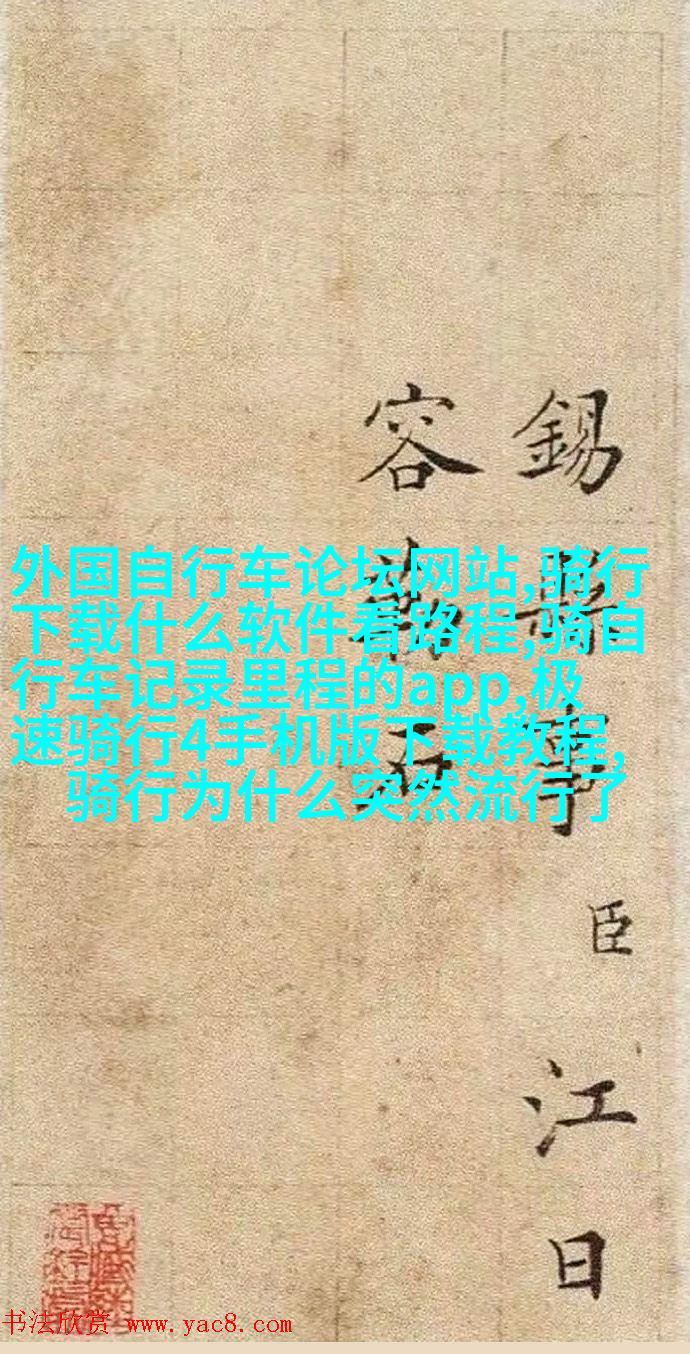 外国自行车论坛网站,骑行
下载什么软件看路程,骑自
行车记录里程的app,极
速骑行4手机版下载教程,
骑行为什么突然流行了
錫
事
臣
江
日
容
书法欣赏 www.yac8.com